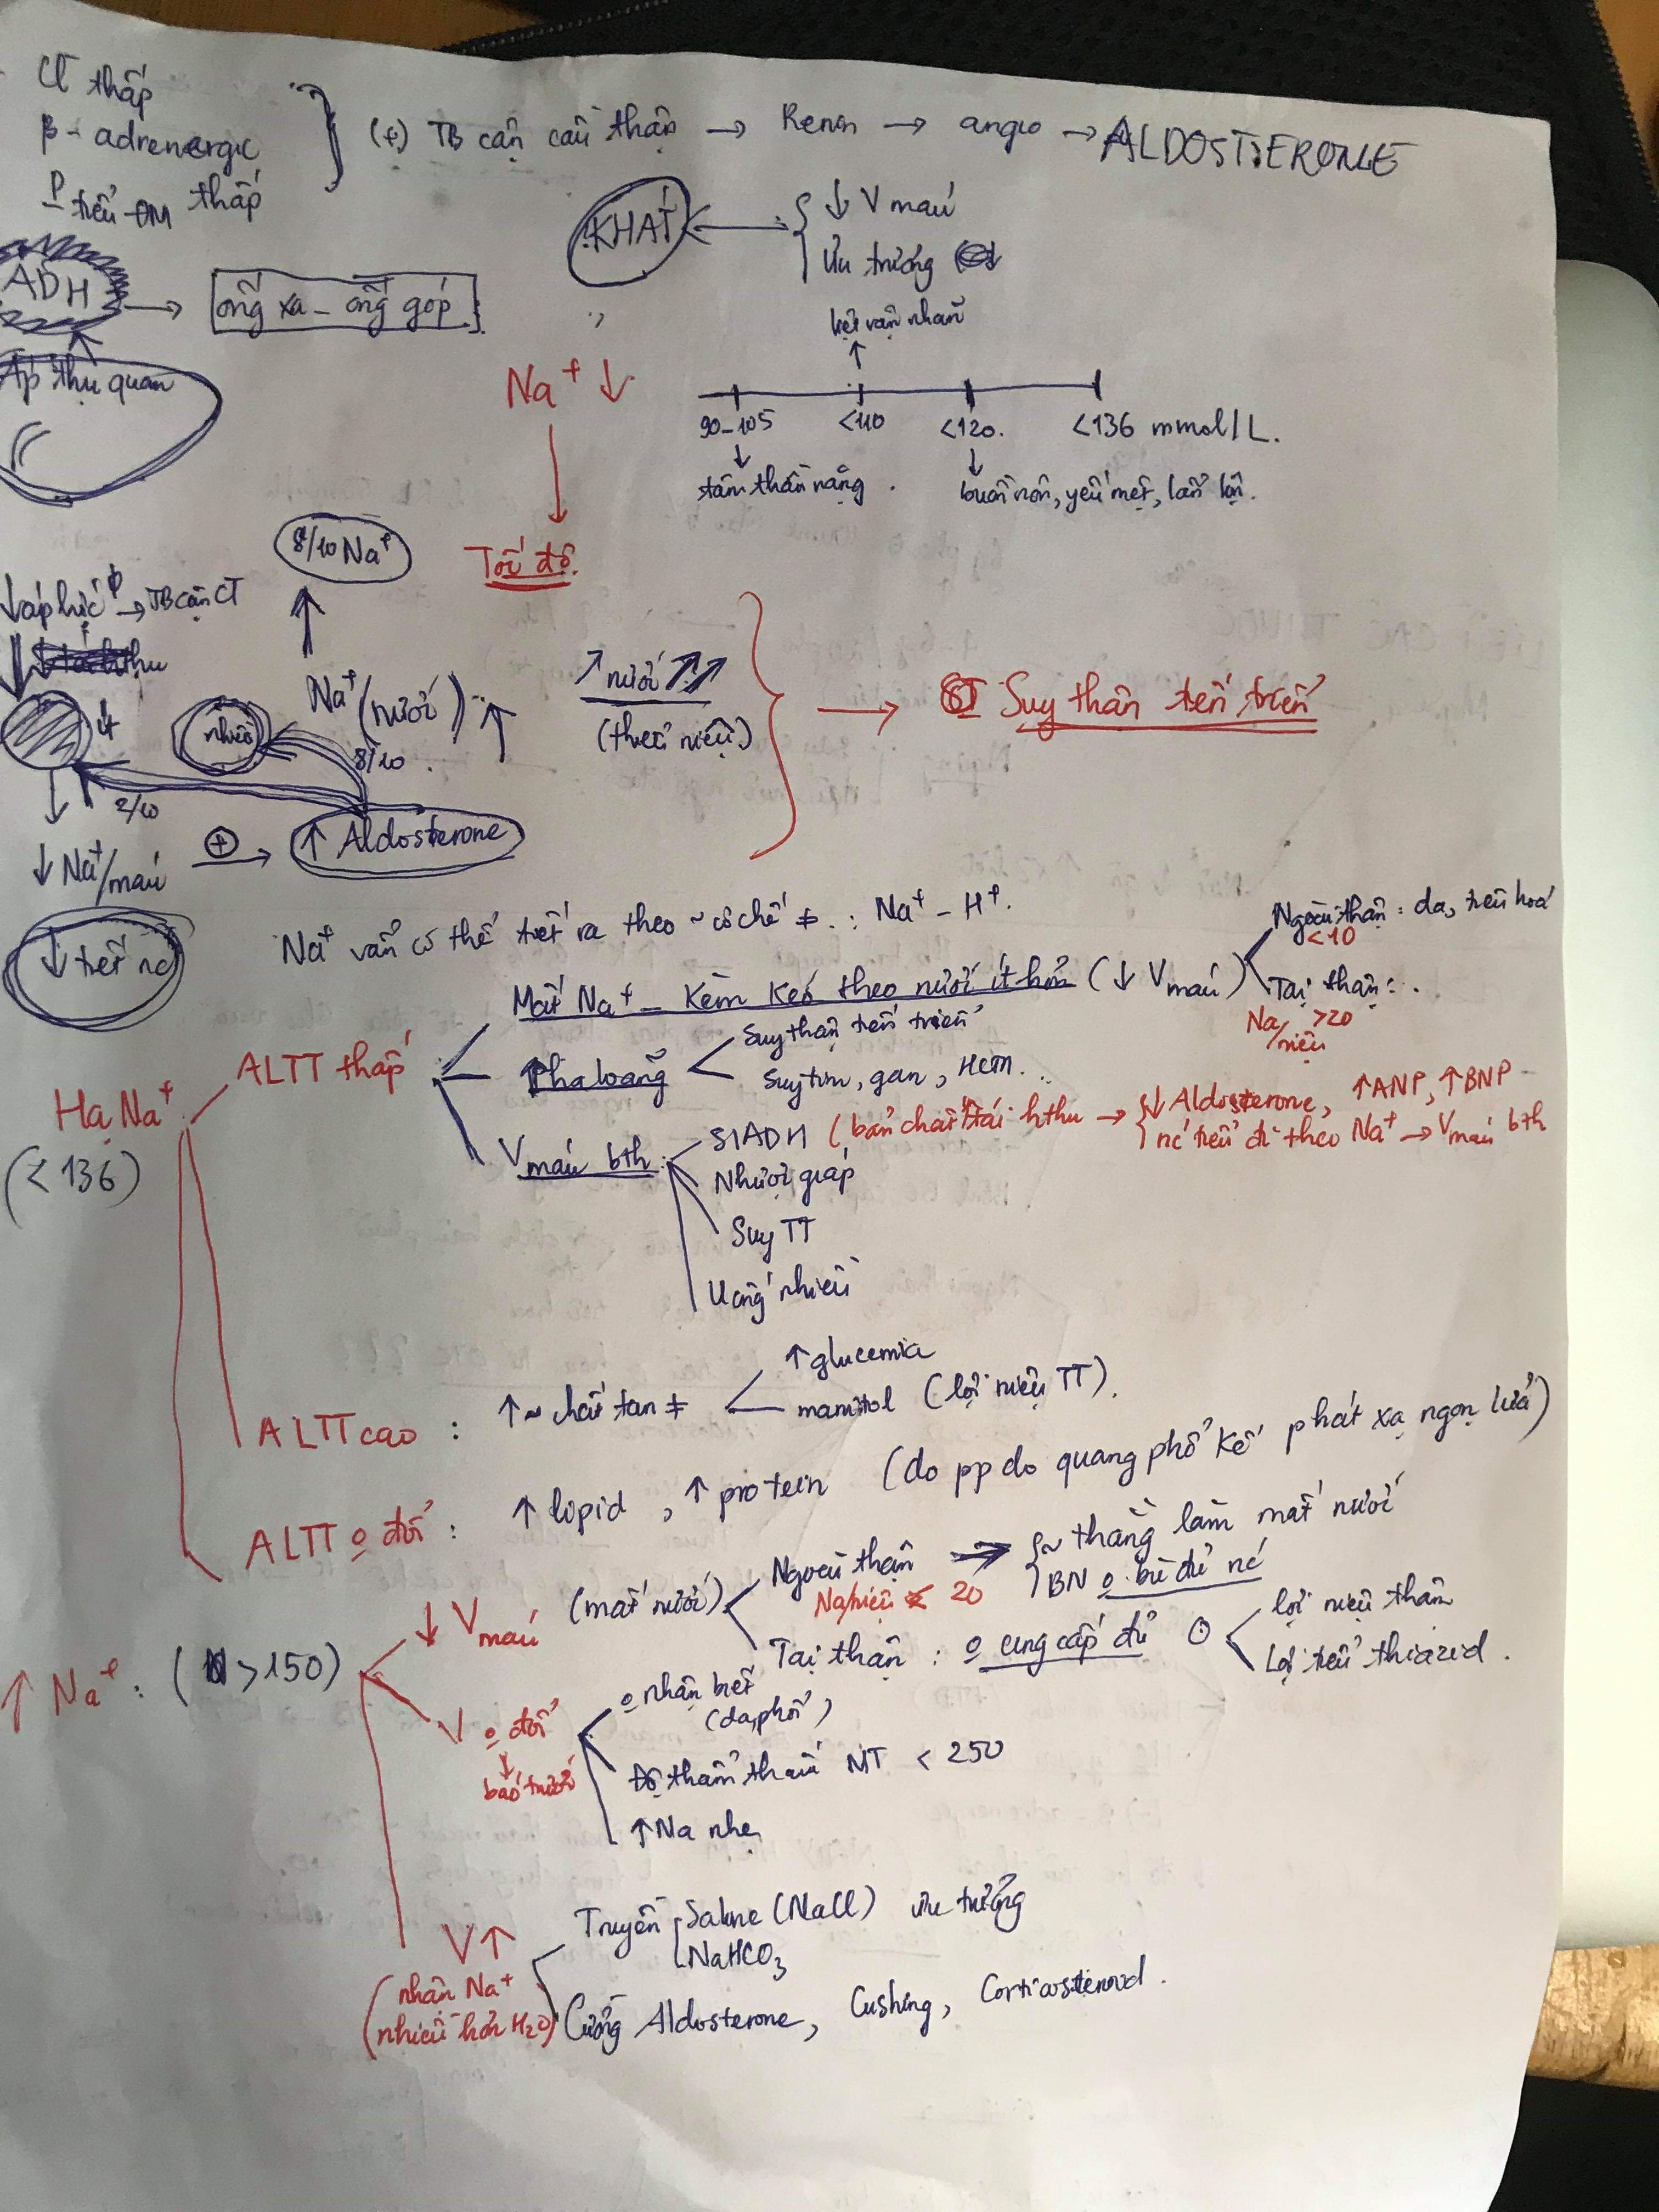 Cl⁻ thấp
β - adrenergic
P tiểu ĐM thấp
(+) TB cận cầu thận → Renin → angio → ALDOSTERONE
KHÁT
↓ V máu
Ưu trương
ADH → ống xa - ống góp
Áp thụ quan
Na⁺ ↓
Tốc độ
90-105
<110
<120
<136 mmol/L.
tâm thần nặng.
buồn nôn, yếu mệt, lẫn lộn.
8/10 Na⁺
↓ áp lực → TB cận CT
ít
nhiều
Na⁺ (nước) ↑
8/10
2/10
↗ nước ↗↗
(theo niệu)
→ Suy thận tiến triển
↓ Na⁺/máu ⊕ → ↑ Aldosterone
↓ tiết nc
Na⁺ vẫn có thể tiết ra theo ~ cơ chế ≠ : Na⁺ - H⁺.
Hạ Na⁺
(<136)
ALTT thấp
Mất Na⁺ - Kèm kéo theo nước ít hơn (↓ V máu)
Ngoài thận: da, tiêu hoá
<10
Tại thận:
Na/niệu >20
Pha loãng
Suy thận tiến triển
Suy tim, gan, HCTH...
V máu bth:
SIADH (bản chất tái hthu → ↓ Aldosterone, ↑ANP, ↑BNP
nc tiểu đi theo Na⁺ → V máu bth
Nhược giáp
Suy TT
Uống nhiều
ALTT cao : ↑ ~ chất tan ≠
↑ glucemia
manitol (lợi niệu TT).
ALTT o đổi : ↑ lipid, ↑ protein (do pp đo quang phổ kế phát xạ ngọn lửa)
↑ Na⁺ : (>150)
↓ V máu (mất nước)
Ngoài thận
Na/niệu < 20
~ thằng làm mất nước
BN o bù đủ nc
Tại thận : o cung cấp đủ
lợi niệu thẩm
Lợi tiểu thiazid.
V o đổi
o nhận biết
(da, phổi)
Độ thẩm thấu NT < 250
↑ Na nhẹ
V ↑
(nhận Na⁺
nhiều hơn H₂O)
Truyền Saline (NaCl) ưu trương
NaHCO₃
Cường Aldosterone, Cushing, Corticosteroid.